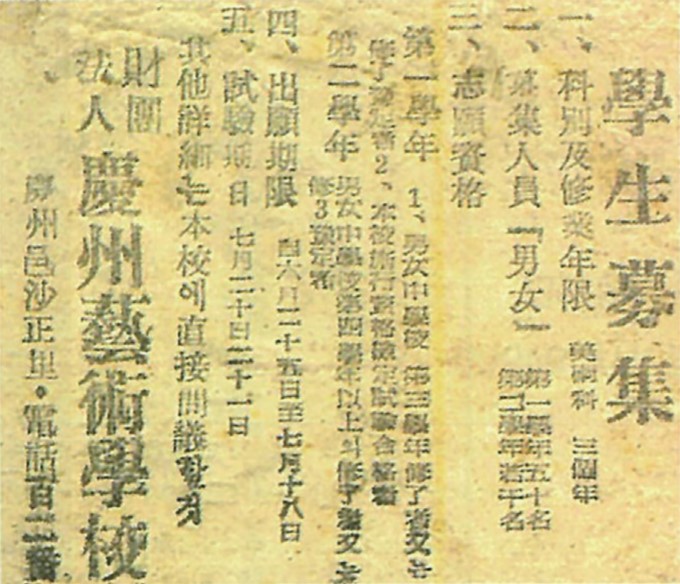 學生募集
一、科別及修業年限 美術科 三個年
二、募集人員「男女」 第一學年五十名
第二學年若干名
三、志願資格
第一學年 1、男女中學校 第三學年修了者又는
修了豫定者2、本校施行資格檢定試驗合格者
第二學年 男女中學校第四學年以上의修了者又는
修3豫定者
四、出願期限 自六月二十五日至七月十八日
五、試驗期日 七月二十日二十一日
其他詳細는本校에直接問議할것
財團
法人 慶州藝術學校
慶州邑沙正里・電話百二番